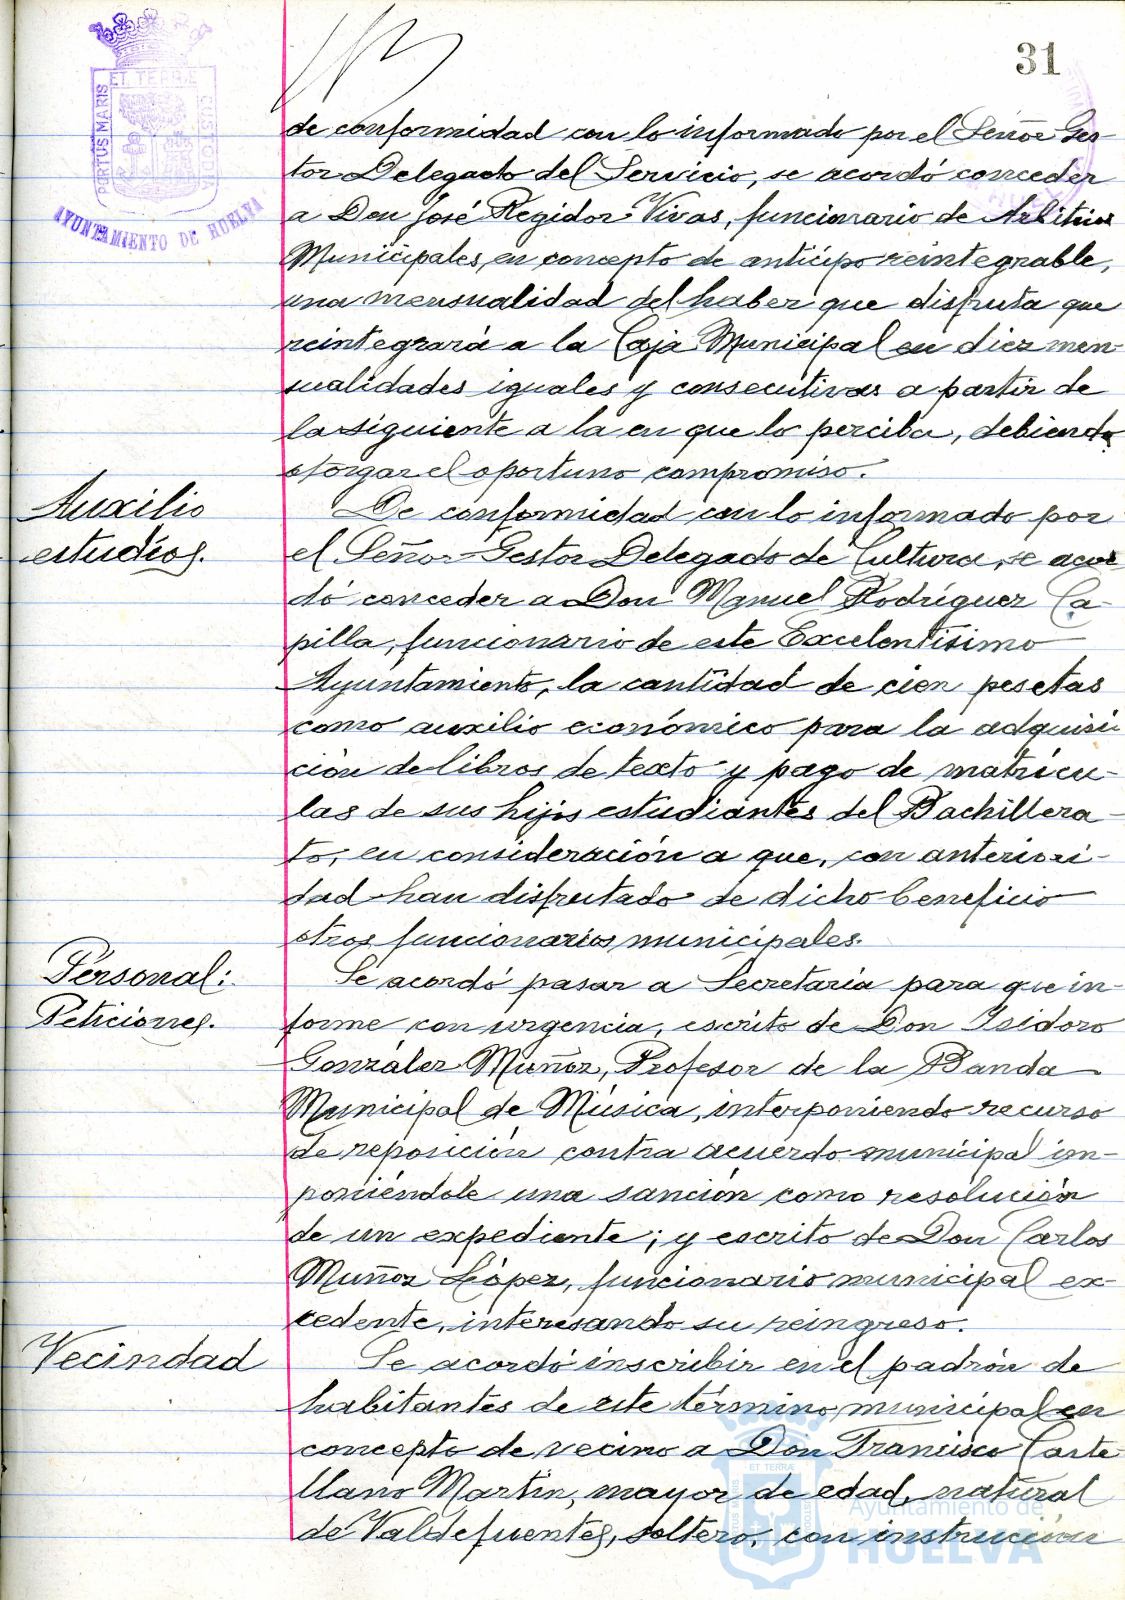 31
ET TERRÆ
PORTUS MARIS
CUSTODIA
AYUNTAMIENTO DE HUELVA
de conformidad con lo informado por el Señor Ges-
tor Delegado del Servicio, se acordó conceder
a Don José Regidor Vivas, funcionario de Arbitrios
Municipales, en concepto de anticipo reintegrable,
una mensualidad del haber que disfruta que
reintegrará a la Caja Municipal en diez men
sualidades iguales y consecutivas a partir de
la siguiente a la en que lo perciba, debiendo
otorgar el oportuno compromiso.
Auxilio
estudios.
De conformidad con lo informado por
el Señor Gestor Delegado de Cultura, se acor
dó conceder a Don Manuel Rodríguez Ca-
pilla, funcionario de este Excelentísimo
Ayuntamiento, la cantidad de cien pesetas
como auxilio económico para la adquisi
ción de libros de texto y pago de matrícu-
las de sus hijos estudiantes del Bachillera-
to, en consideración a que, con anteriori-
dad han disfrutado de dicho beneficio
otros funcionarios municipales.
Personal:
Peticiones.
Se acordó pasar a Secretaría para que in-
forme con urgencia, escrito de Don Isidoro
González Muñoz, Profesor de la Banda
Municipal de Música, interponiendo recurso
de reposición contra acuerdo municipal im-
poniéndole una sanción como resolución
de un expediente; y escrito de Don Carlos
Muñoz López, funcionario municipal ex-
cedente, interesando su reingreso.
Vecindad
Se acordó inscribir en el padrón de
habitantes de este término municipal en
concepto de vecino a Don Francisco Caste
llano Martín, mayor de edad, natural
de Valdefuentes, soltero, con instrucción
ET TERRÆ
Ayuntamiento de
HUELVA